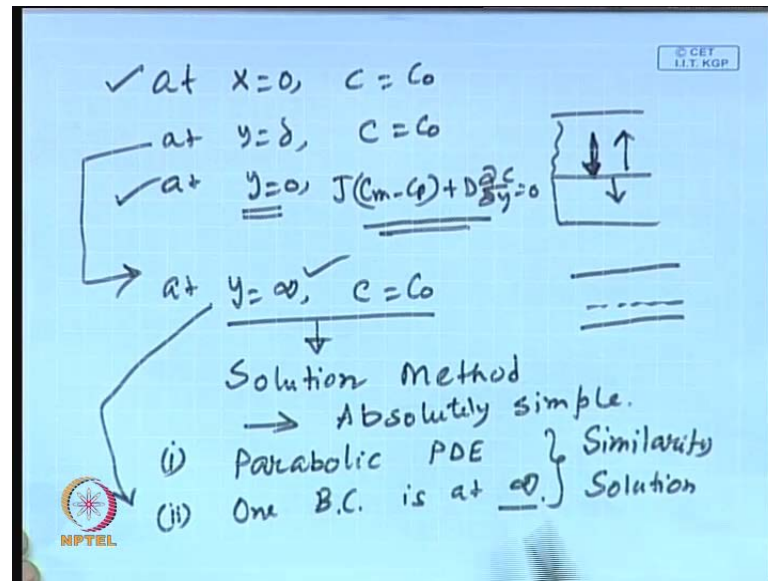 © CET
I.I.T. KGP
✓ at x=0, C = Co
at y=δ, C = Co
✓ at y=0, J(Cm-Cp)+D∂C/∂y=0
at y=∞, ✓ C = Co
Solution Method
→ Absolutely simple.
(i) Parabolic PDE } Similarity
(ii) One B.C. is at ∞. } Solution
NPTEL